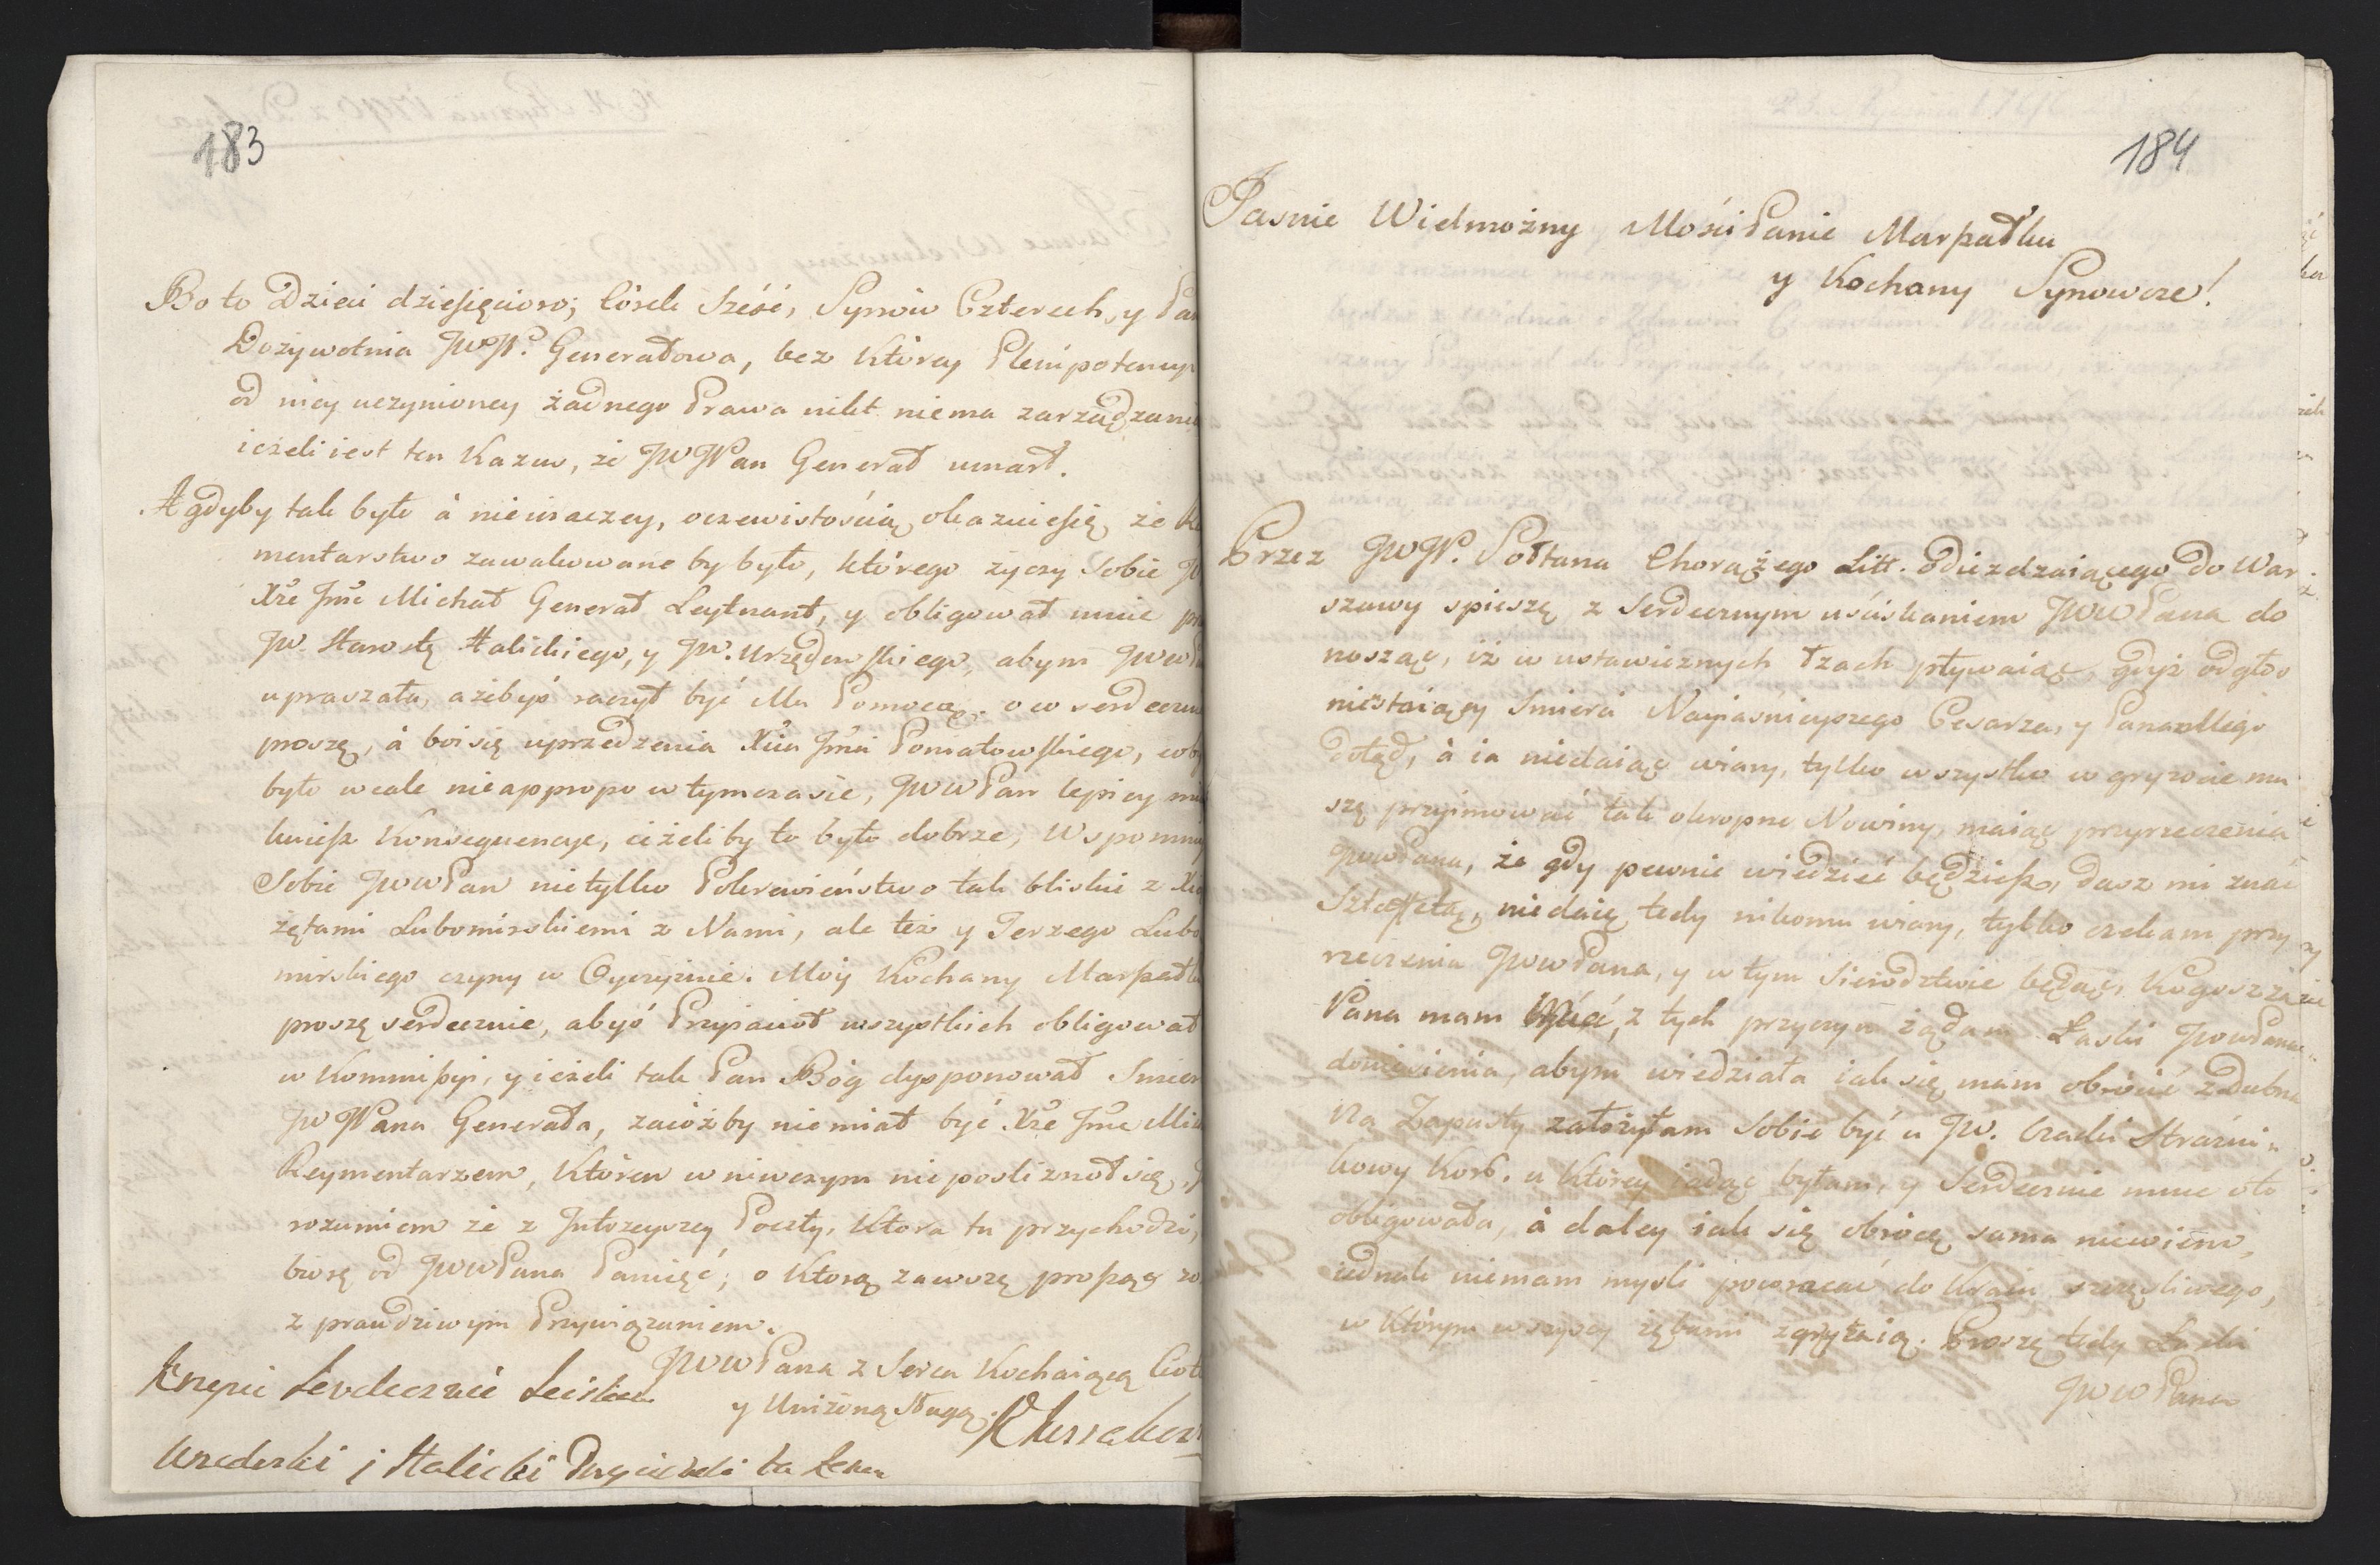 183
Bo to Dzieci dziesięcioro; Córek Sześć, Synów Czterech, y Pan
Dożywotnia JWP. Generałowa, bez Którey Plenipotencyi
od niey uczynioney żadnego Prawa nikt niema zarządzania
ieżeli iest ten Kazus, że JWPan Generał umarł.
A gdyby tak było à nieinaczey, oczewistością okazuiesię, że Re
mentarstwo zawakowane by było, którego życzy Sobie JO
Xże Jmć Michał Generał Leytnant, y obligował mnie pr
JW Starostę Halickiego, y JW. Urzędowskiego, abym JWWPa
upraszała, ażebyś raczył być Mu Pomocą, o co serdeczn
proszę, à boi się uprzedzenia Xcia Jmci Poniatowskiego, coby
było wcale nieappropo w tym czasie, JWWPan lepiey
Konsequencye, ieżeliby to było dobrze, Wspomniy
Sobie JWWPan nietylko Pokrewieństwo tak bliskie z Xią
żętami Lubomirskiemi z Nami, ale też y Jerzego Lubo
mirskiego czyny w Oyczyznie. Móy Kochany Marszałku
proszę serdecznie, abyś Przyiaciół wszystkich obligował
w Kommissyi, y ieżeli tak Pan Bóg dysponował Smier
JWPana Generała, zacóżby niemiał być Xże Jmć Mich
Reymentarzem, Któren w niwczym nieposliznął się,
rozumiem że z Jutrzeyszey Poczty, Która tu przychodzi,
biorę od JWWPana Pamięć; o Którą zawszę proszęę zo
z prawdziwym Przywiązaniem.
JWWPana z Serca Kochaiącą Ciot
y Uniżoną Sługą
Serdecznie
i Halicki
184
Jasnie Wielmożny Mości Panie Marszałku
y Kochany Synowcze!
Przez JWP. Sołtana Chorążego Litt. Odieżdzaiącego do War
szawy spieszę z Serdecznym uściskaniem JWWPana do
nosząc, iż w ustawicznych łzach pływaiąc, gdyż odgłos
niestaiący Smierci Nayiaśnieyszego Cesarza, y Pana Mego
dotąd, à ia niedaiąc wiary, tylko wszystko w gryzocie mu
szę przyimować tak okropne Nowiny, maiąc przyrzeczenia
JWWPana, że gdy pewnie wiedzieć będziesz, dasz mi znać
Sztaffetą, niedaię tedy nikomu wiary, tylko czekam przy
rzeczenia JWWPana, y w tym Sieroctwie będąc, Kogosz za
Pana mam z tych przyczyn żądam Łaski JWWPana
doniesienia, abym wiedziała iak się mam obrócić z Dubna
Na Zapusty założyłam Sobie być u JW. Czacki Strażni„
kowy Kor. u Którey iadąc byłam, y Serdecznie mnie oto
obligowała, à daley iak się obrócę sama niewiem,
iednak niemam mysli powracać do Kraiu szczęśliwego,
w Którym wszyscy zębami zgrzytaią. Proszę tedy Łaski
JWWPana